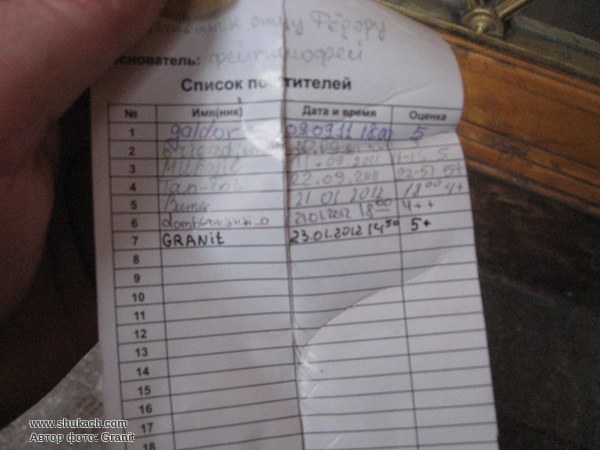 отцу Фёдору
основатель: фейтимофей
Список по тителей
№ Имя(ник) Дата и время Оценка
1 galdor 09.09.11 18.00 5
2
3 11.09.2011 5
4 Tan-Tol 22.09.2011 02-57 5+
5 21 01 2012 18 00 4+
6 21.01.2012 18 00 4++
7 GRANit 23.01.2012 14 50 5+
8
9
10
11
12
13
14
15
16
17
18
www.shukach.com
Автор фото: Granit